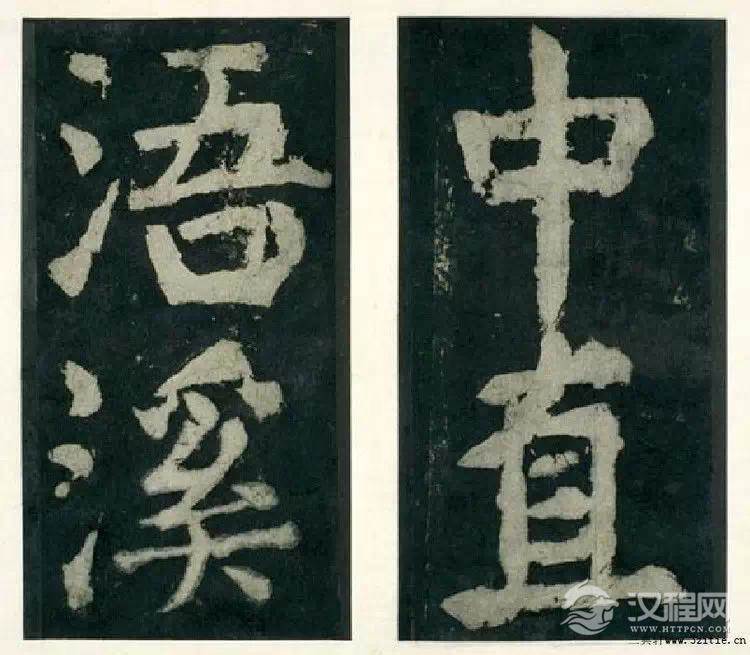 中直
浯溪
汉程网
WWW.HTTPCN.COM
www.321tie.cn